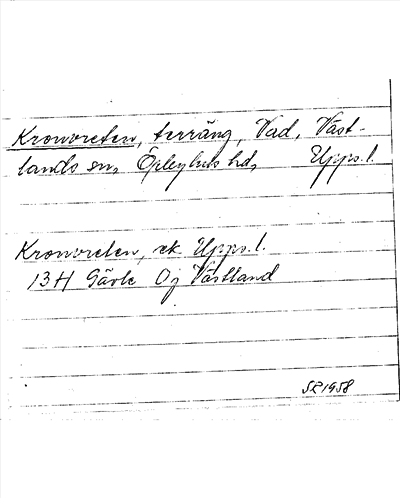 Kronvreten, terräng, Vad, Väst-
lands sn, Örbyhus hd, Upps. l.
Kronvreten, ek. Upps. l.
13H Gävle 0j Västland
SR 1958